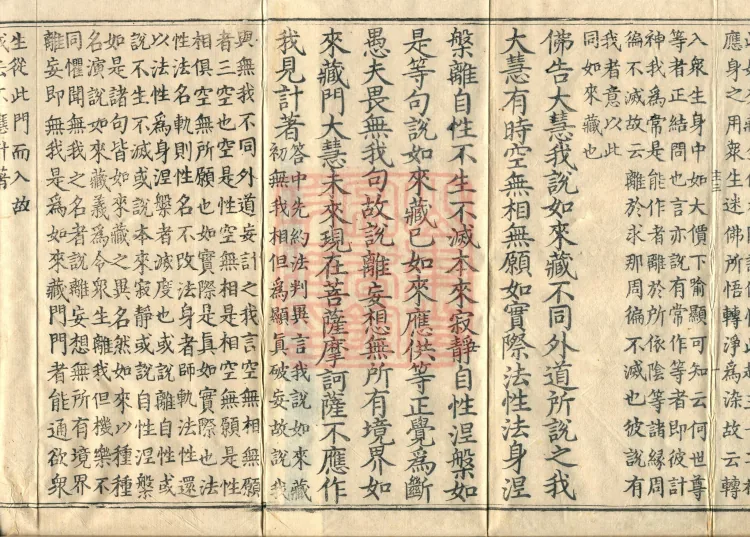 應身之用衆生迷佛所悟轉淨為染故云轉
入衆生身中如大價下喻顯可知云何世尊
等者正結問也言亦說有常作等者即彼計
神我為常是能作者離於所依陰等諸緣周
徧不滅故云離於求那周徧不滅也彼說有
我者意以此
同如來藏也
佛告大慧我說如來藏不同外道所說之我
大慧有時空無相無願如實際法性法身涅
槃離自性不生不滅本來寂靜自性涅槃如
是等句說如來藏已如來應供等正覺為斷
愚夫畏無我句故說離妄想無所有境界如
來藏門大慧未來現在菩薩摩訶薩不應作
我見計著
答中先約法判異言我說如來藏
初無我相但為顯眞破妄故說我
與無我不同外道妄計之我言空無相無願
者三空也空是性空無相是相空無願是性
相俱空無所願也如實際是真如實際也法
性法名軌則性名不改法身者師軌法性還
以法性為身涅槃者滅度也或說離自性或
說不生不滅或說本來寂靜或說自性涅槃
如是諸句皆如來藏之異名然如來以種種
名演說如來藏義為令衆生離我但機樂不
同懼聞無我之名者說離妄想無所有境界
離妄即無我是為如來藏門門者能通欲衆
生從此門而入故